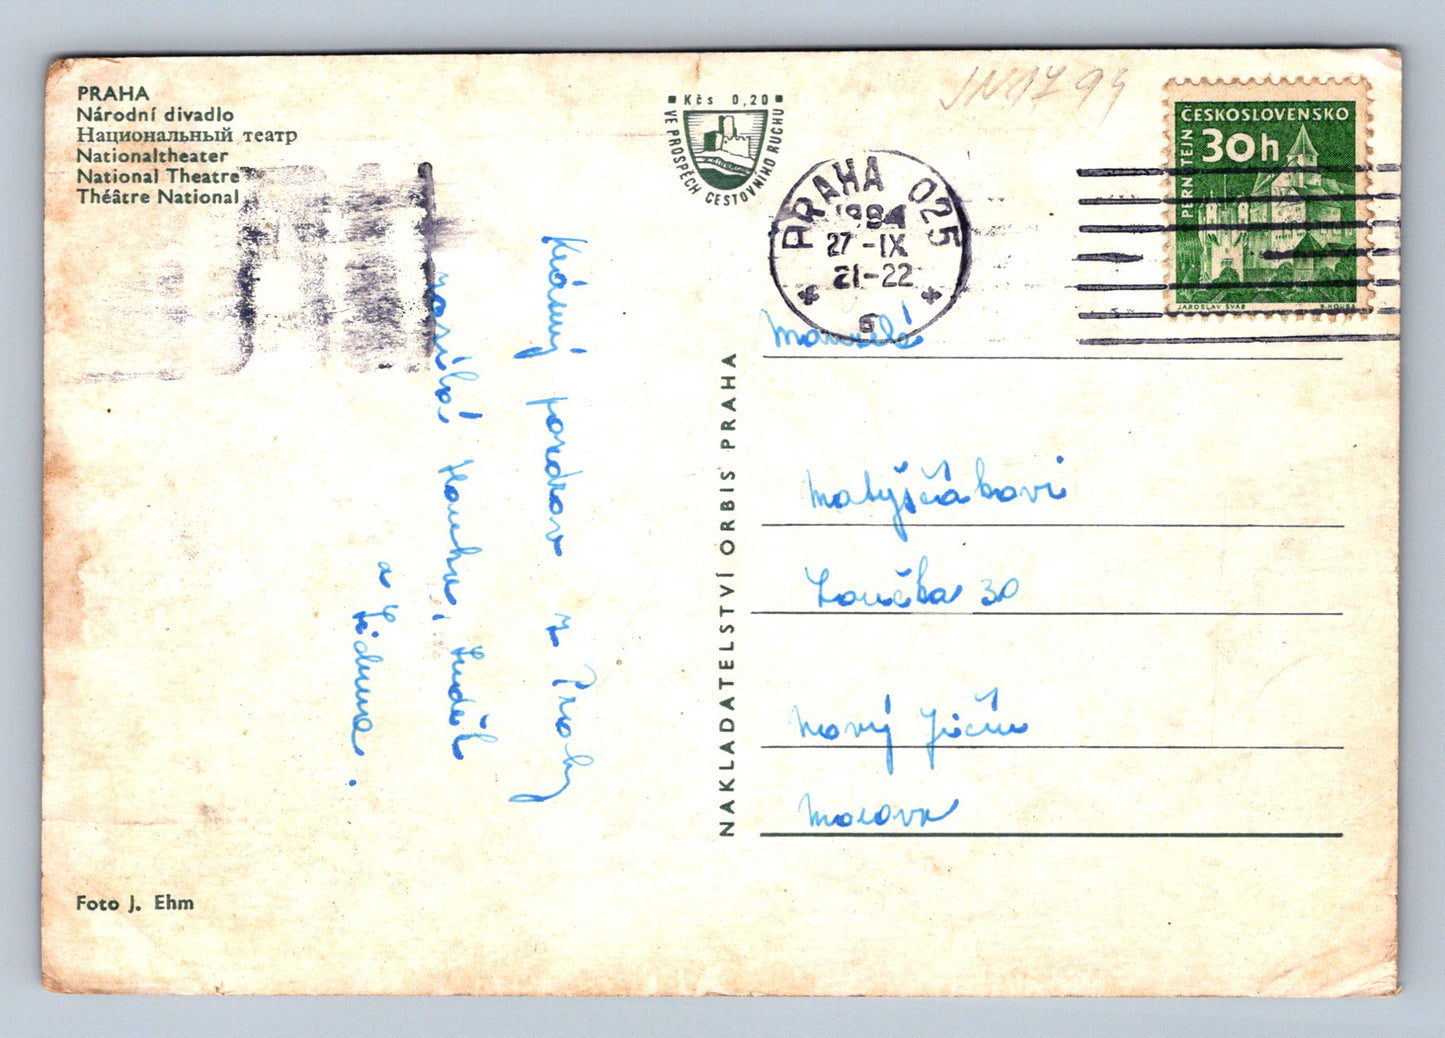 PRAHA
Národní divadlo
Национальный театр
Nationaltheater
National Theatre
Théâtre National
Kčs 0,20
VE PROSPĚCH CESTOVNÍHO RUCHU
PRAHA 025
27-IX
21-22
6
ČESKOSLOVENSKO
30h
PERNŠTEJN
JAROSLAV ŠVÁB
Krásný pozdrav z Prahy
zasílá Hanka, Luděk
a Liduna.
NAKLADATELSTVÍ ORBIS PRAHA
Manželé
Matyščákovi
Loučka 30
Nový Jičín
Morava
Foto J. Ehm